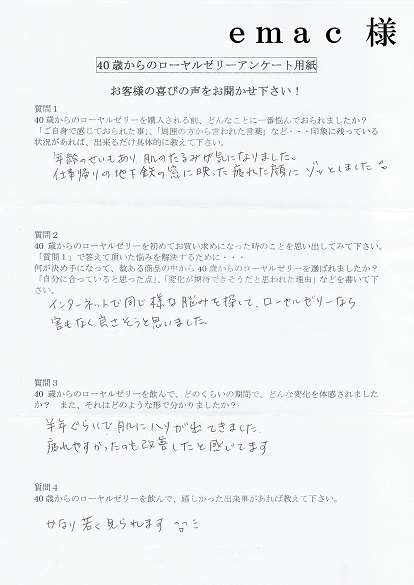 emac 様
40歳からのローヤルゼリーアンケート用紙
お客様の喜びの声をお聞かせ下さい！
質問１
40歳からのローヤルゼリーを購入される前、どんなことに一番悩んでおられましたか？
「ご自身で感じておられた事」、「周囲の方から言われた言葉」など・・・印象に残っている
状況があれば、出来るだけ具体的に教えて下さい。
年齢のせいもあり 肌のたるみが気になりました。
仕事帰りの地下鉄の窓に映った疲れた顔に ゾッとしました。
質問２
40歳からのローヤルゼリーを初めてお買い求めになった時のことを思い出してみて下さい。
「質問１」で答えて頂いた悩みを解決するために・・・
何が決め手になって、数ある商品の中から40歳からのローヤルゼリーを選ばれましたか？
「自分に合っていると思った点」、「変化が期待できそうだと思われた理由」などを書いて下
さい。
インターネットで同じ様な悩みを探して、ローヤルゼリーなら
害もなく良さそうと思いました。
質問３
40歳からのローヤルゼリーを飲んで、どのくらいの期間で、どんな変化を体感されました
か？　また、それはどのような形で分かりましたか？
半年ぐらいで肌にハリが出てきました
疲れやすかったのも改善したと感じてます
質問４
40歳からのローヤルゼリーを飲んで、嬉しかった出来事があれば教えて下さい。
かなり若く見られます